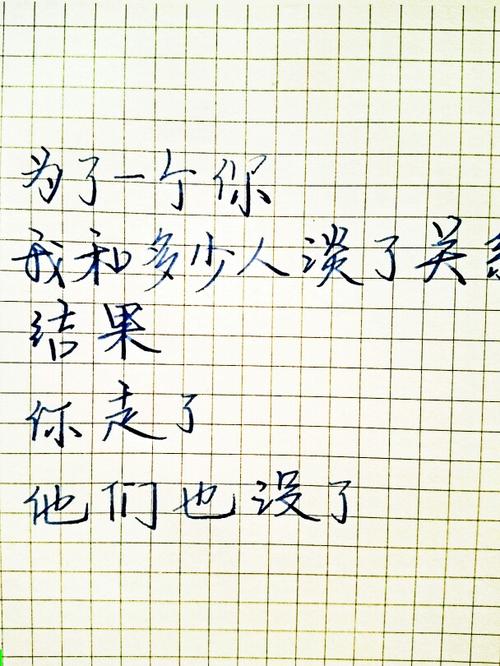 为了一个你
我和多少人淡了关系
结果
你走了
他们也没了